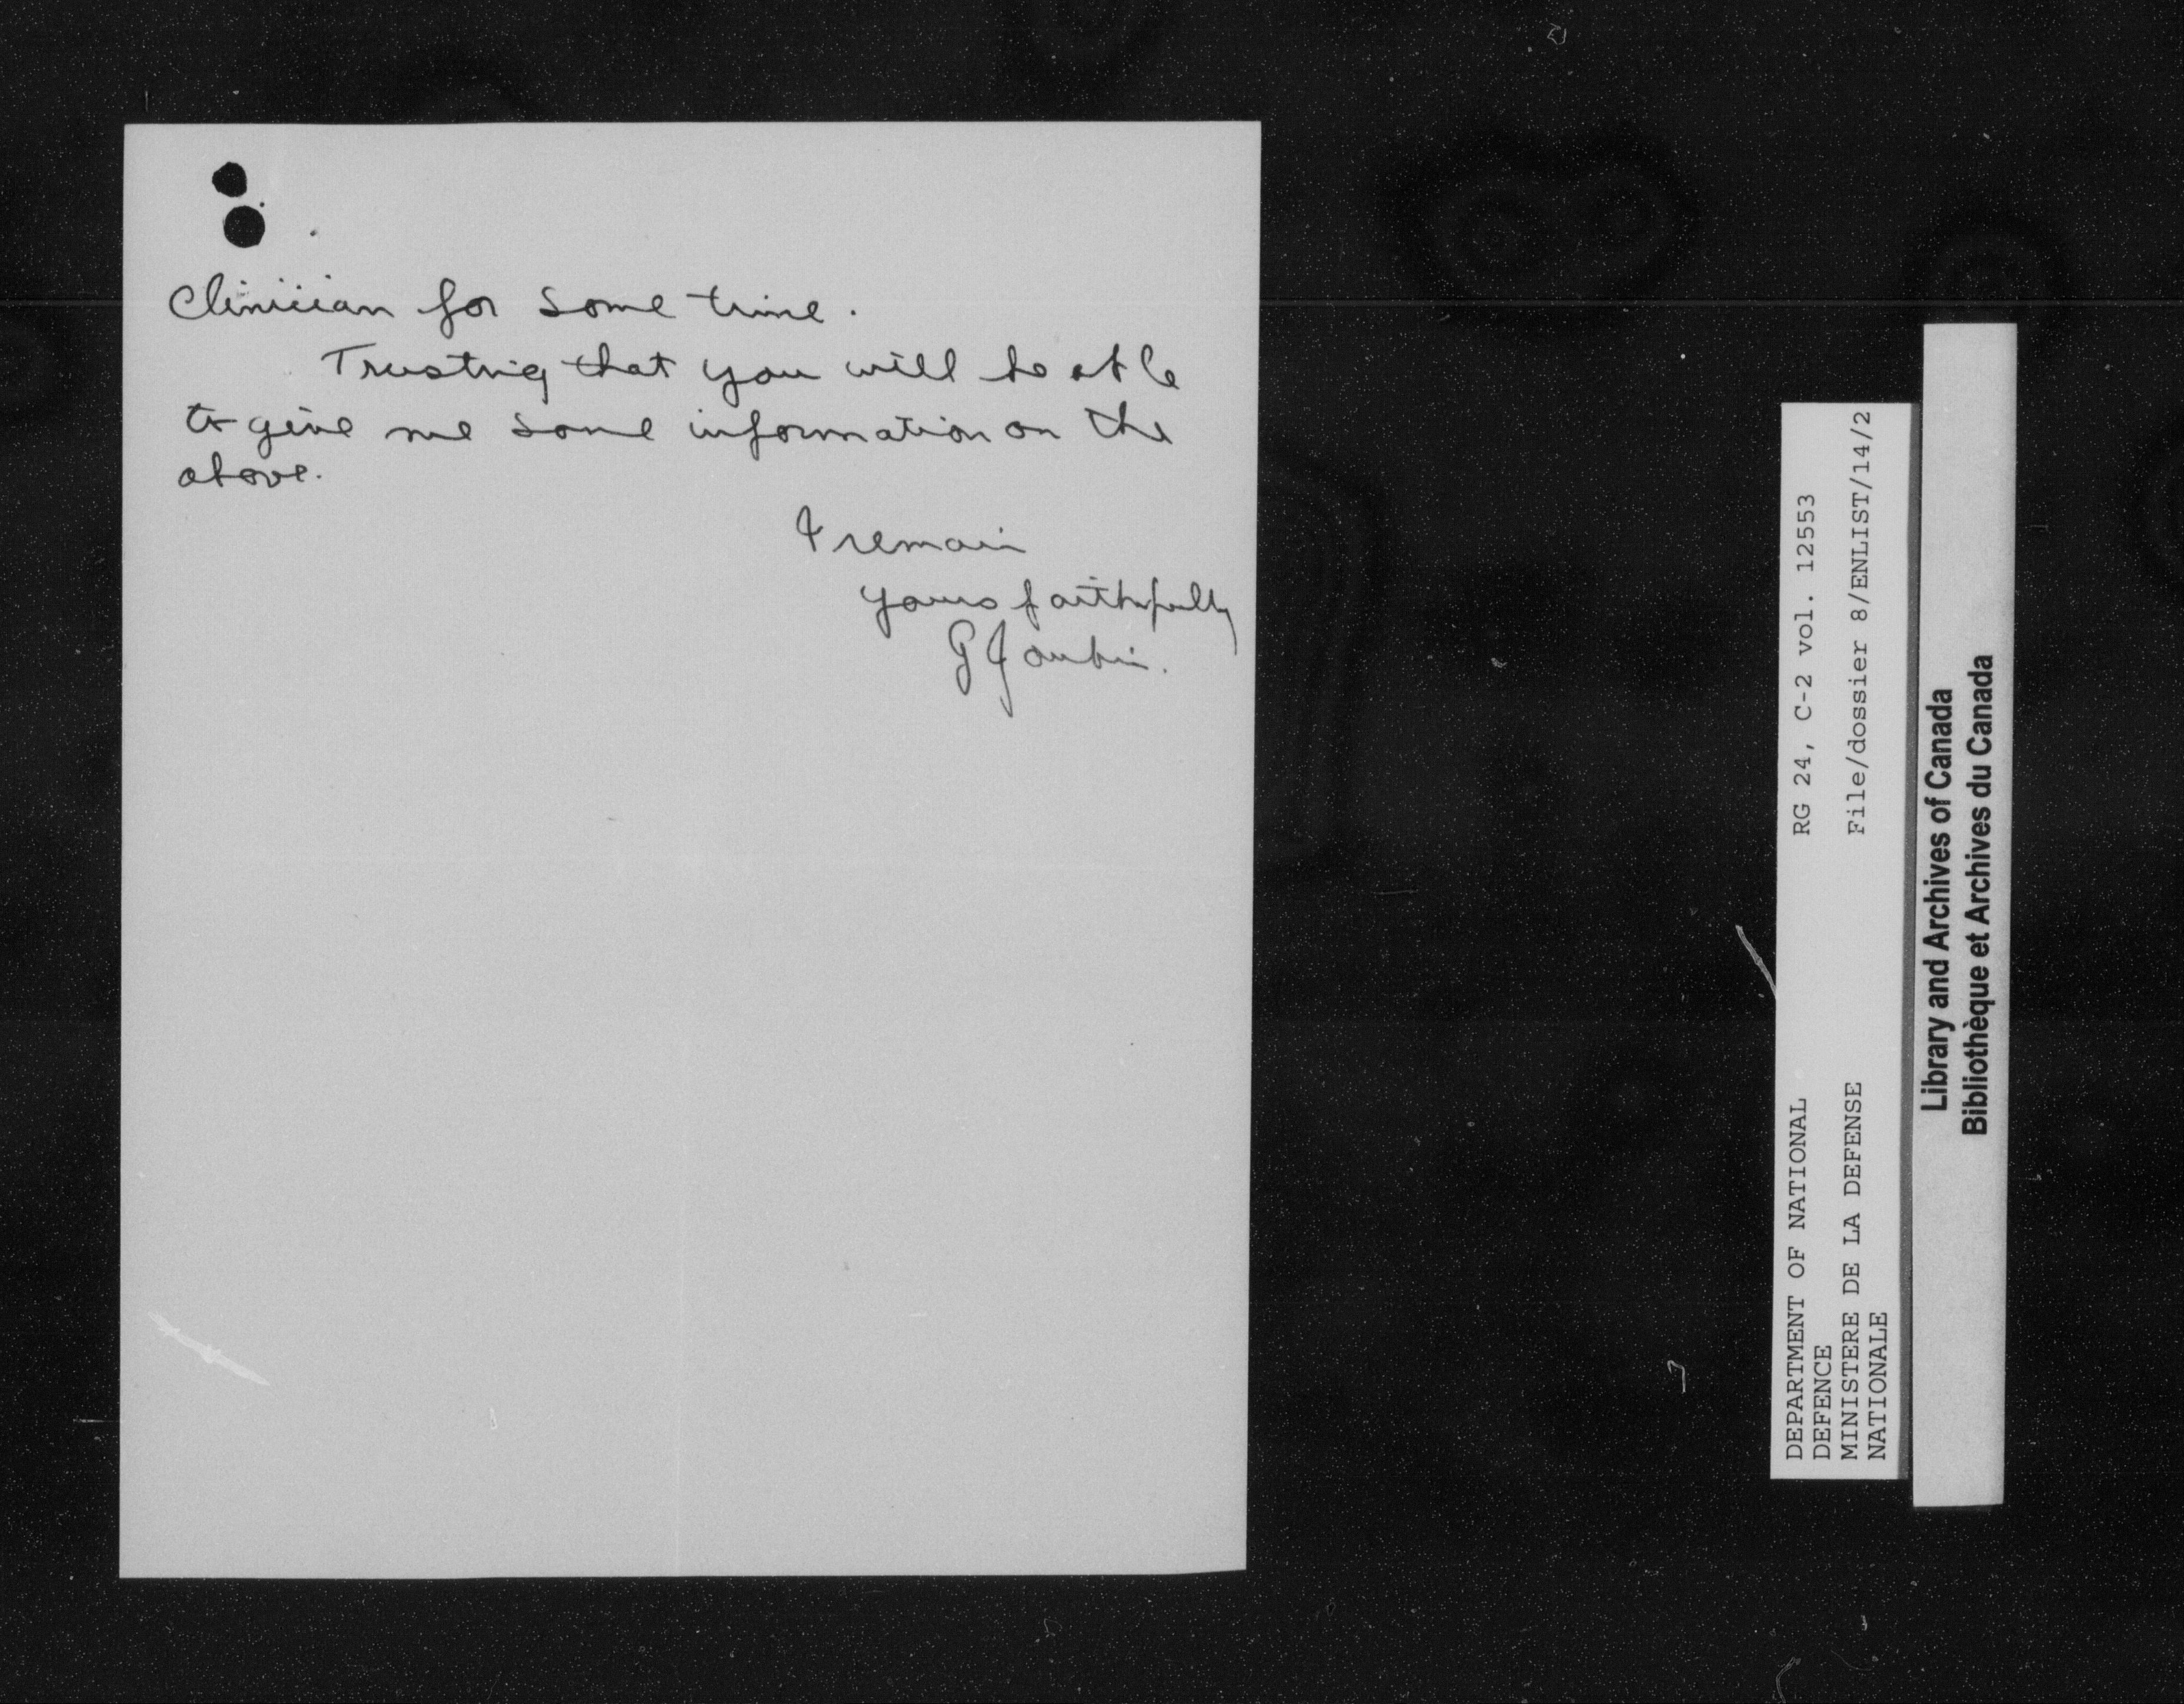 Clinician for some time.
Trusting that you will be able
to give me some information on the
above.
I remain
yours faithfully
RG 24, C-2 vol. 12553
File/dossier 8/ENLIST/14/2
DEPARTMENT OF NATIONAL
DEFENCE
MINISTERE DE LA DEFENSE
NATIONALE
Library and Archives of Canada
Bibliothèque et Archives du Canada